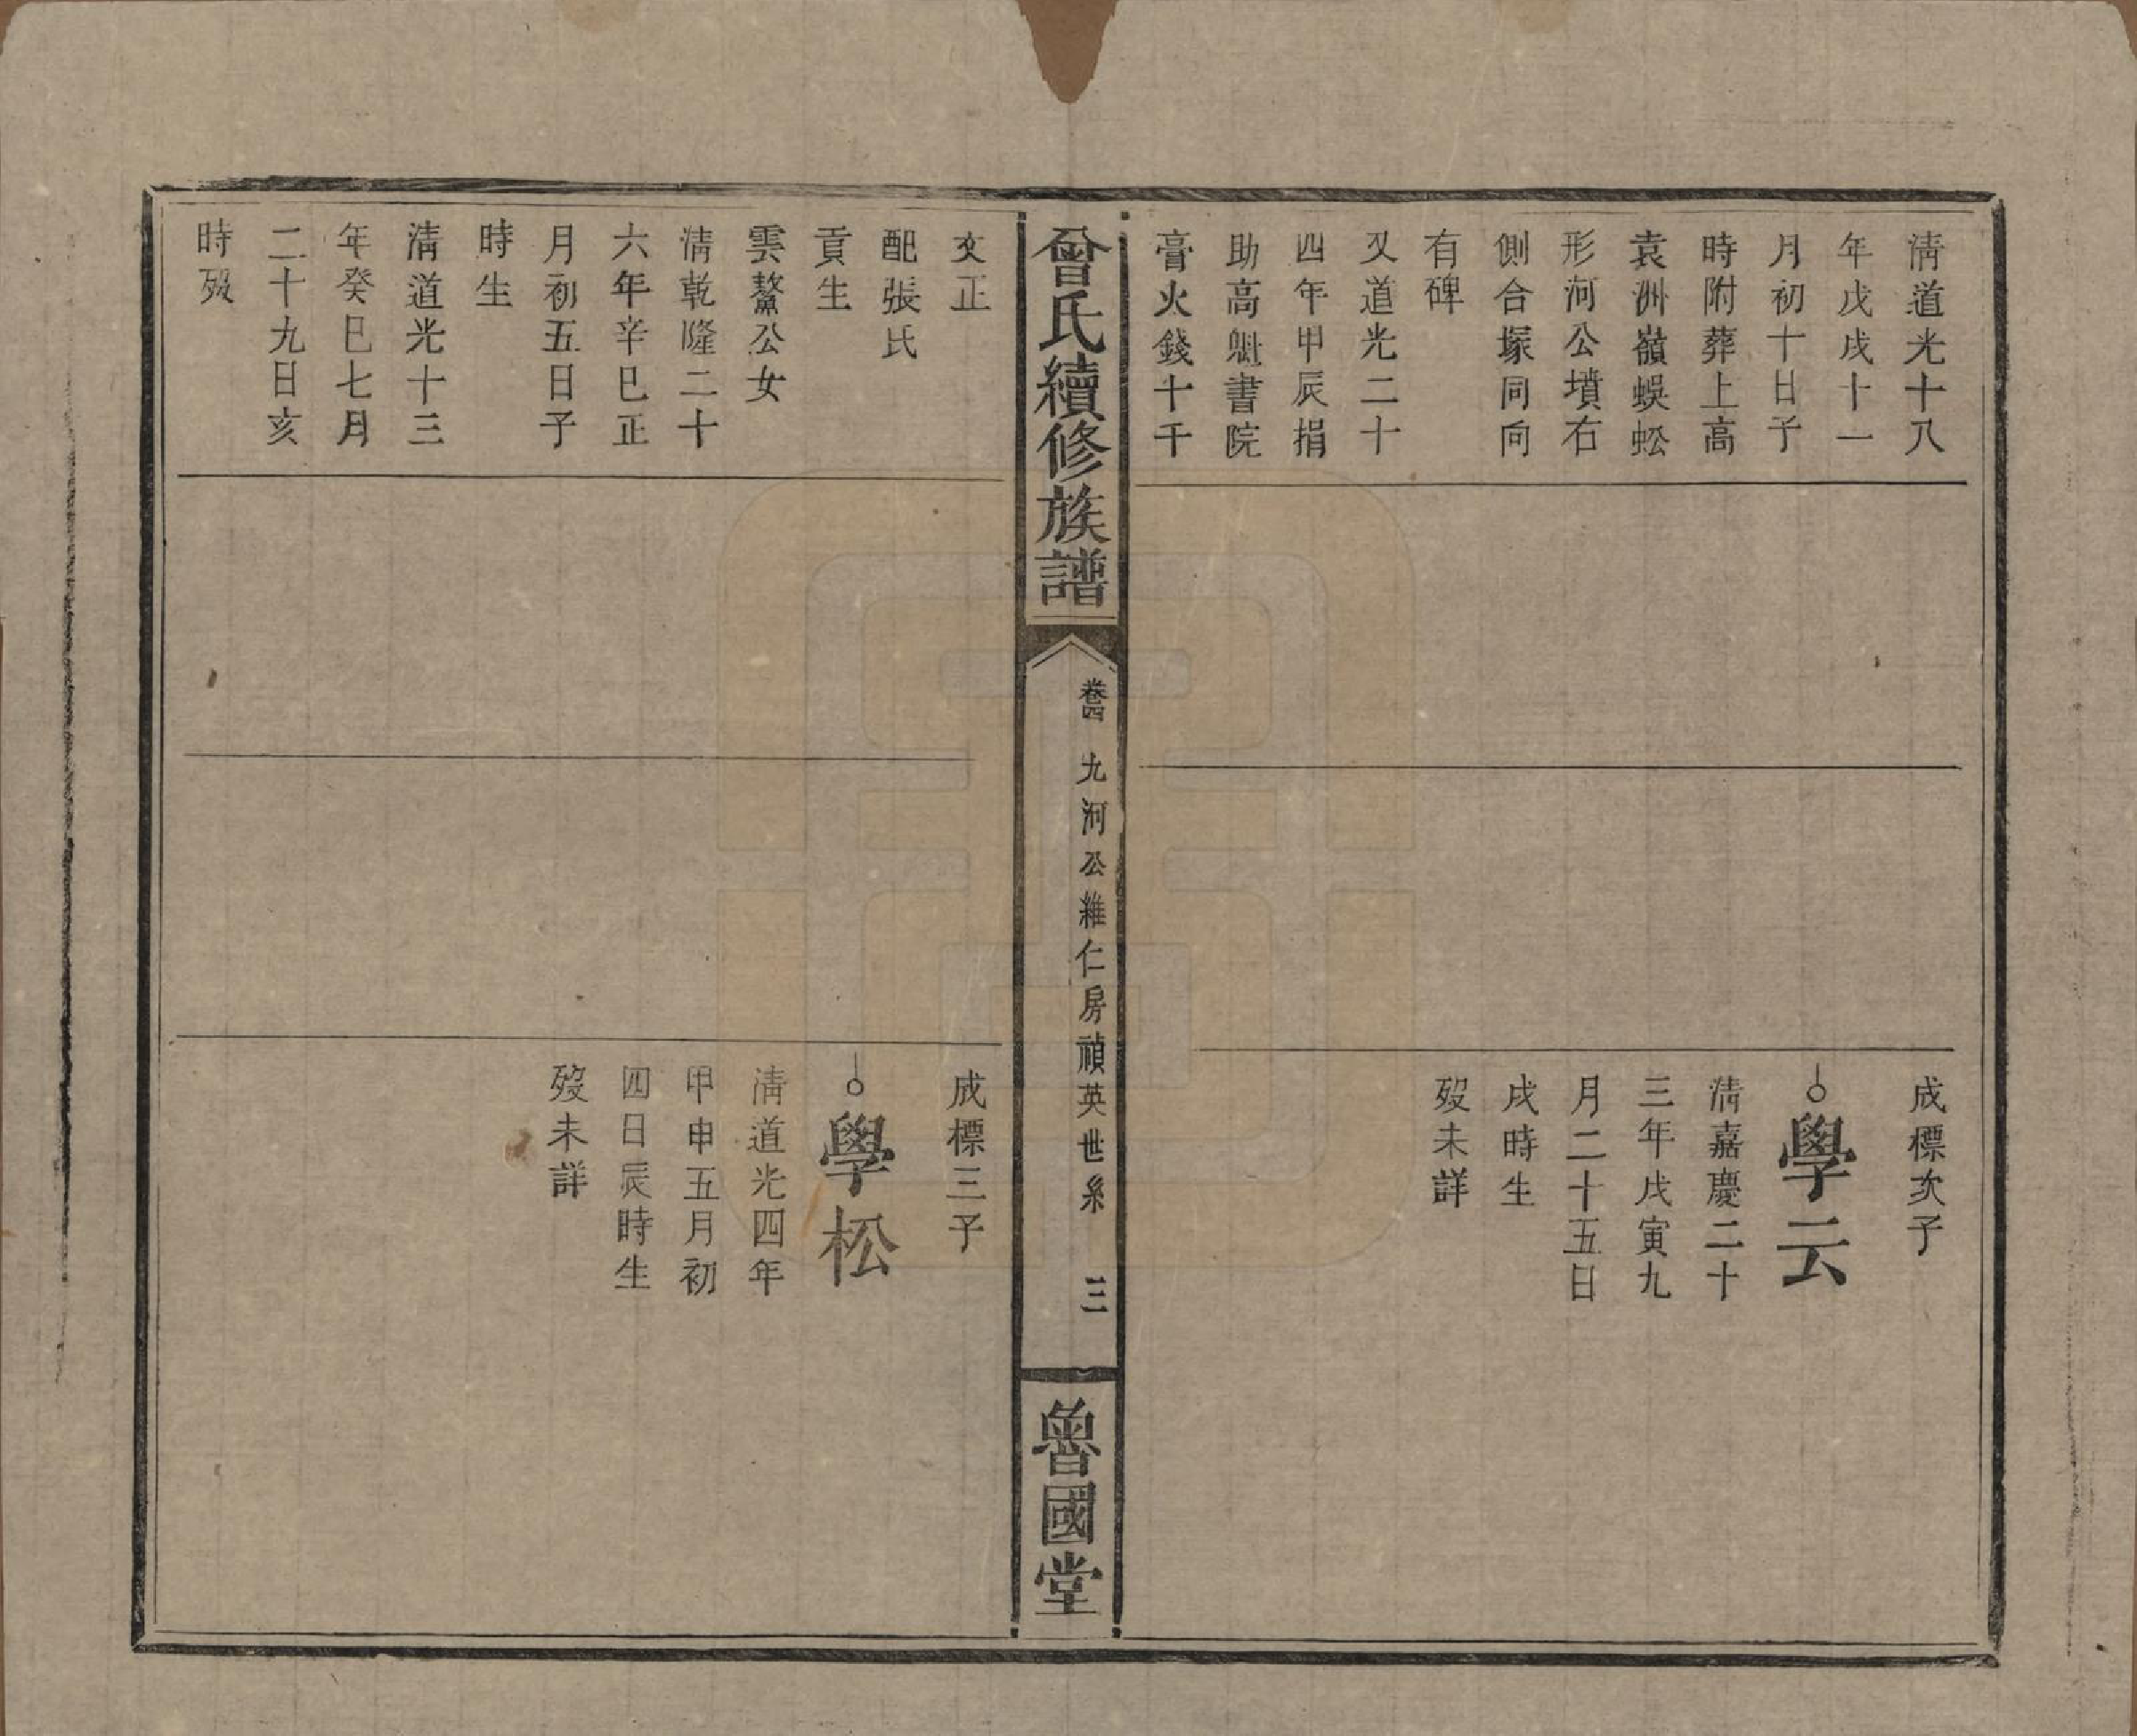 清道光十八
年戊戌十一
月初十日子
時附葬上高
袁洲嶺蜈蚣
形河公墳右
側合塚同向
有碑
又道光二十
四年甲辰捐
助高魁書院
膏火錢十千
成標次子
學云
清嘉慶二十
三年戊寅九
月二十五日
戌時生
歿未詳
曾氏續修族譜
卷四 九河公維仁房禎英世系 三
魯國堂
文正
配張氏
貢生
雲鰲公女
清乾隆二十
六年辛巳正
月初五日子
時生
清道光十三
年癸巳七月
二十九日亥
時歿
成標三子
學松
清道光四年
甲申五月初
四日辰時生
歿未詳